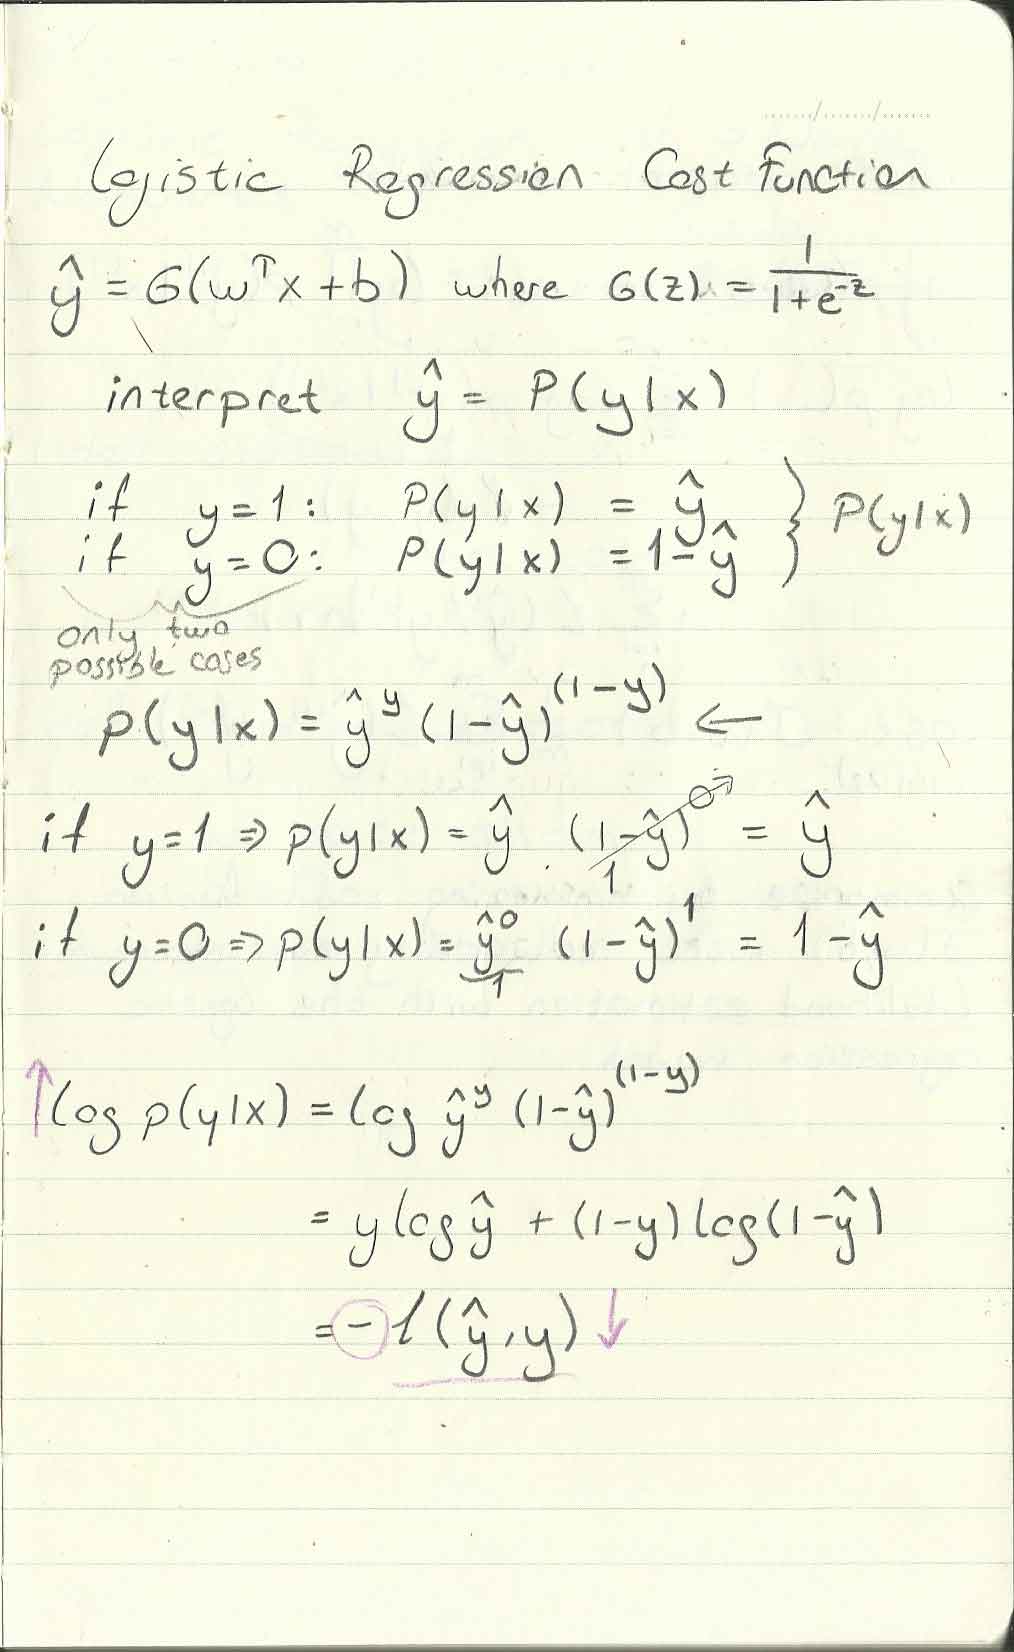 Logistic Regression Cost Function
ŷ = σ(wᵀx + b) where σ(z) = 1/(1+e⁻ᶻ)
interpret ŷ = P(y|x)
if y=1: P(y|x) = ŷ
if y=0: P(y|x) = 1-ŷ } P(y|x)
only two
possible cases
p(y|x) = ŷ^y (1-ŷ)^(1-y) ←
if y=1 ⇒ p(y|x) = ŷ · (1-ŷ)^0 = ŷ
1
if y=0 ⇒ p(y|x) = ŷ^0 (1-ŷ)^1 = 1-ŷ
1
↑ log p(y|x) = log ŷ^y (1-ŷ)^(1-y)
= y log ŷ + (1-y) log(1-ŷ)
= - l(ŷ,y) ↓